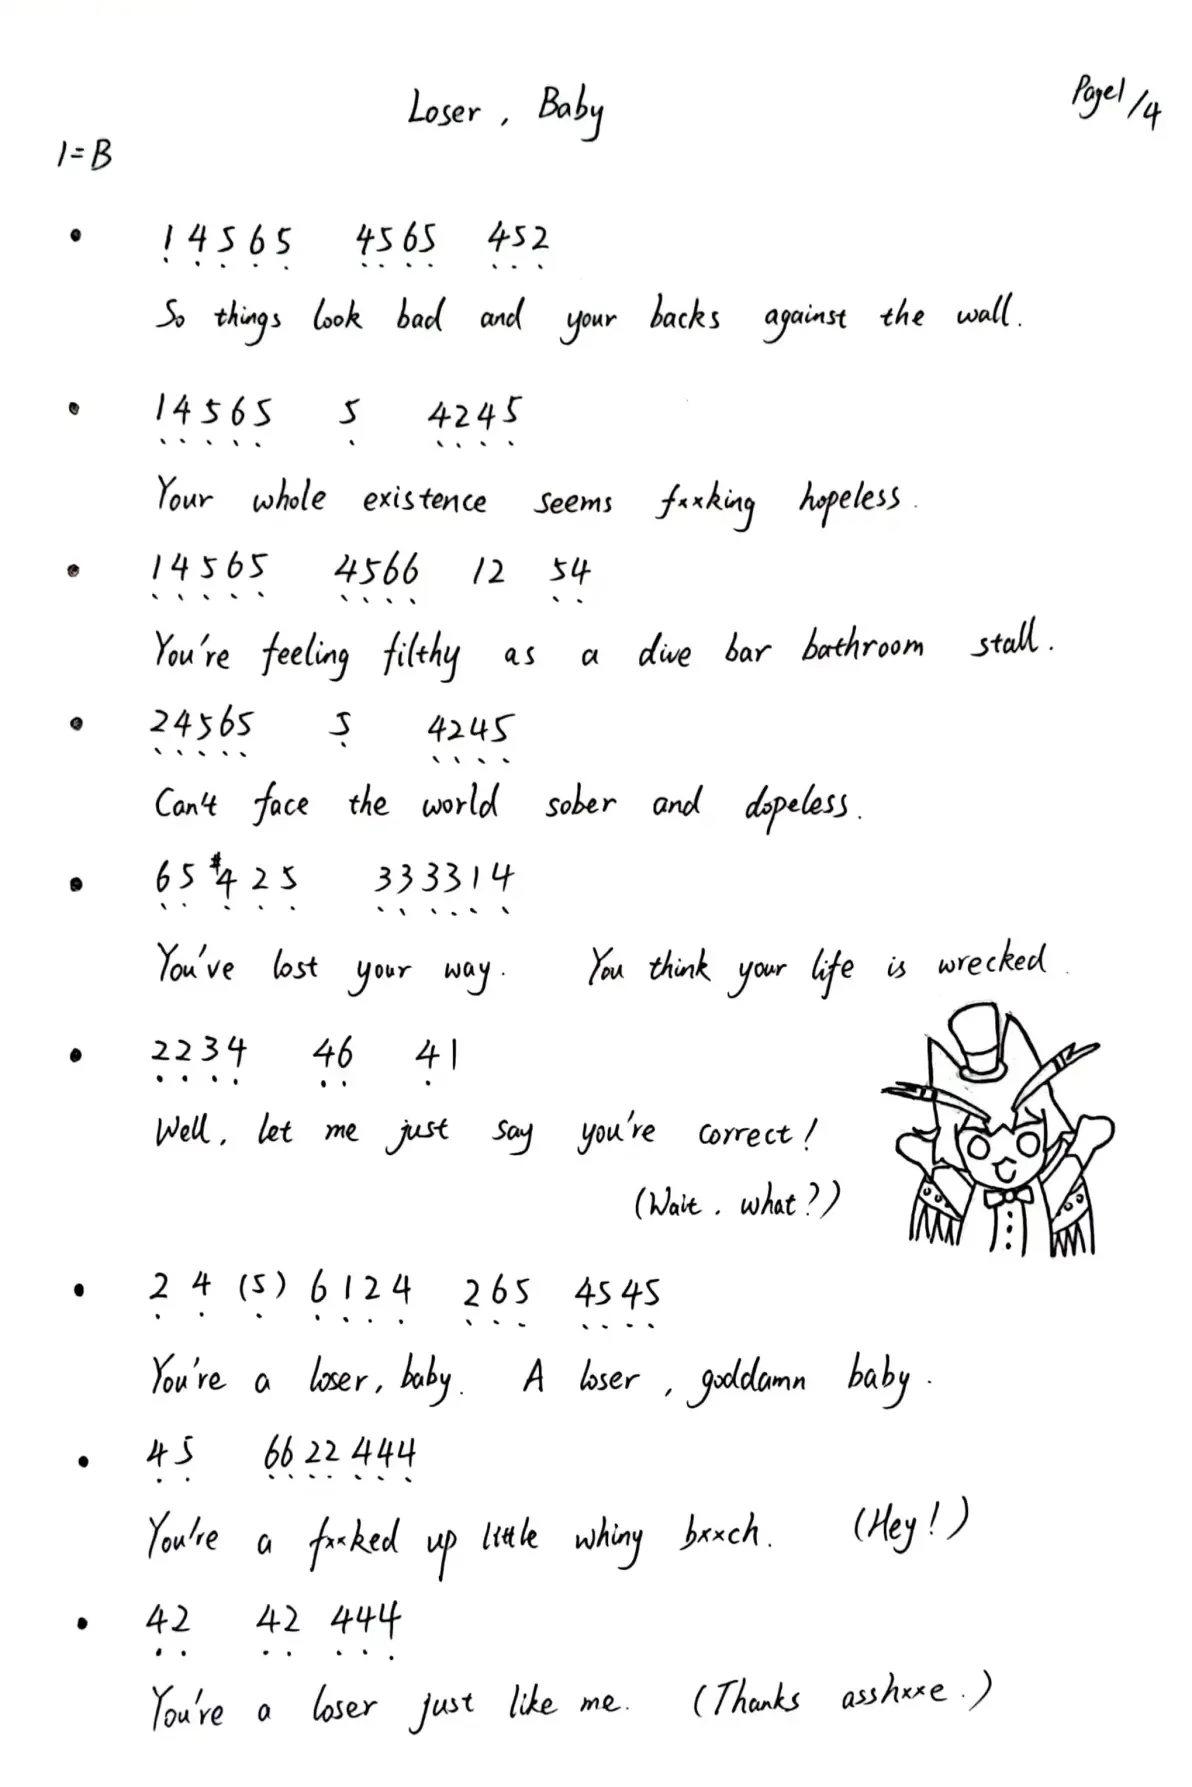 Loser, Baby
Page1/4
1=B
• 1 4 5 6 5 4565 452
So things look bad and your backs against the wall.
• 14565 5 4245
Your whole existence seems fxxking hopeless.
• 14565 4566 12 54
You're feeling filthy as a dive bar bathroom stall.
• 24565 5 4245
Can't face the world sober and dopeless.
• 65 #4 2 5 333314
You've lost your way. You think your life is wrecked.
• 2234 46 41
Well, let me just say you're correct!
(Wait, what?)
• 2 4 (5) 6 1 2 4 265 4545
You're a loser, baby. A loser, goddamn baby.
• 45 66 22 444
You're a fxxked up little whiny bxxch. (Hey!)
• 42 42 444
You're a loser just like me. (Thanks asshxxe.)